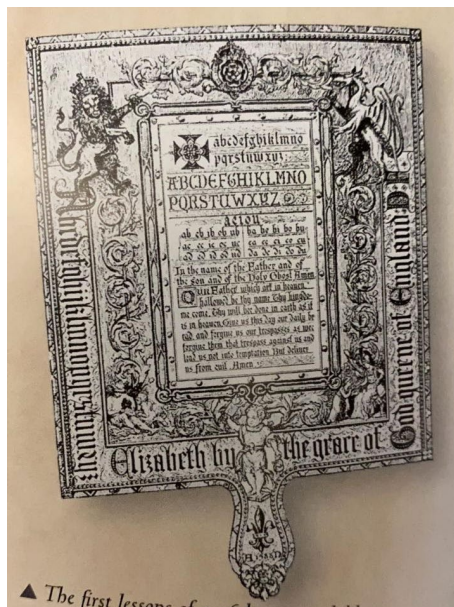 abcdefghiklmno
pqrstuwxyz
ABCDEFGHIKLMNO
PQRSTUWXYZ
aeiou
ab eb ib ob ub ba be bi bo bu
ac ec ic oc uc ca ce ci co cu
ad ed id od ud da de di do du
In the name of the Father and of
the son and of the Holy Ghost Amen
Our Father which art in heaven
hallowed be thy name Thy kingdo-
me come. Thy will bee done in earth as it
is in heaven. Give us this day our daily br
ead and forgive us our trespasses as wee
forgive them that trespass against us and
lead us not into temptation But deliver
us from evil Amen
Elizabeth by the grace of
God queene of England
The first lessons